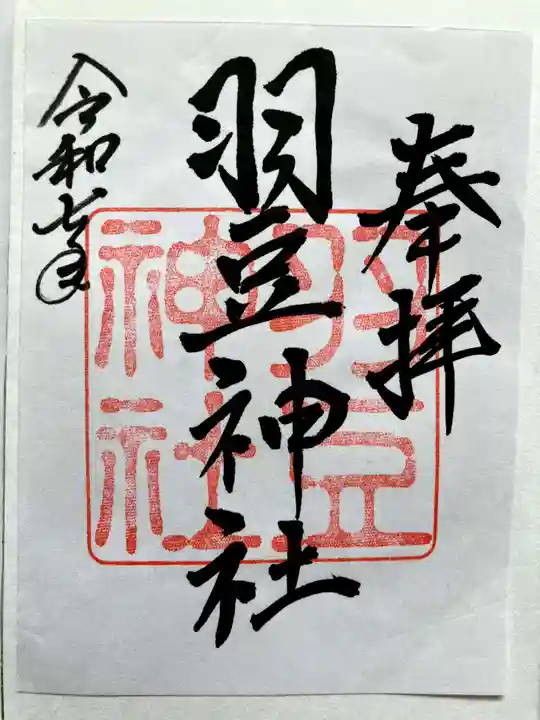 奉拝
羽豆神社
羽豆神社
令和七年